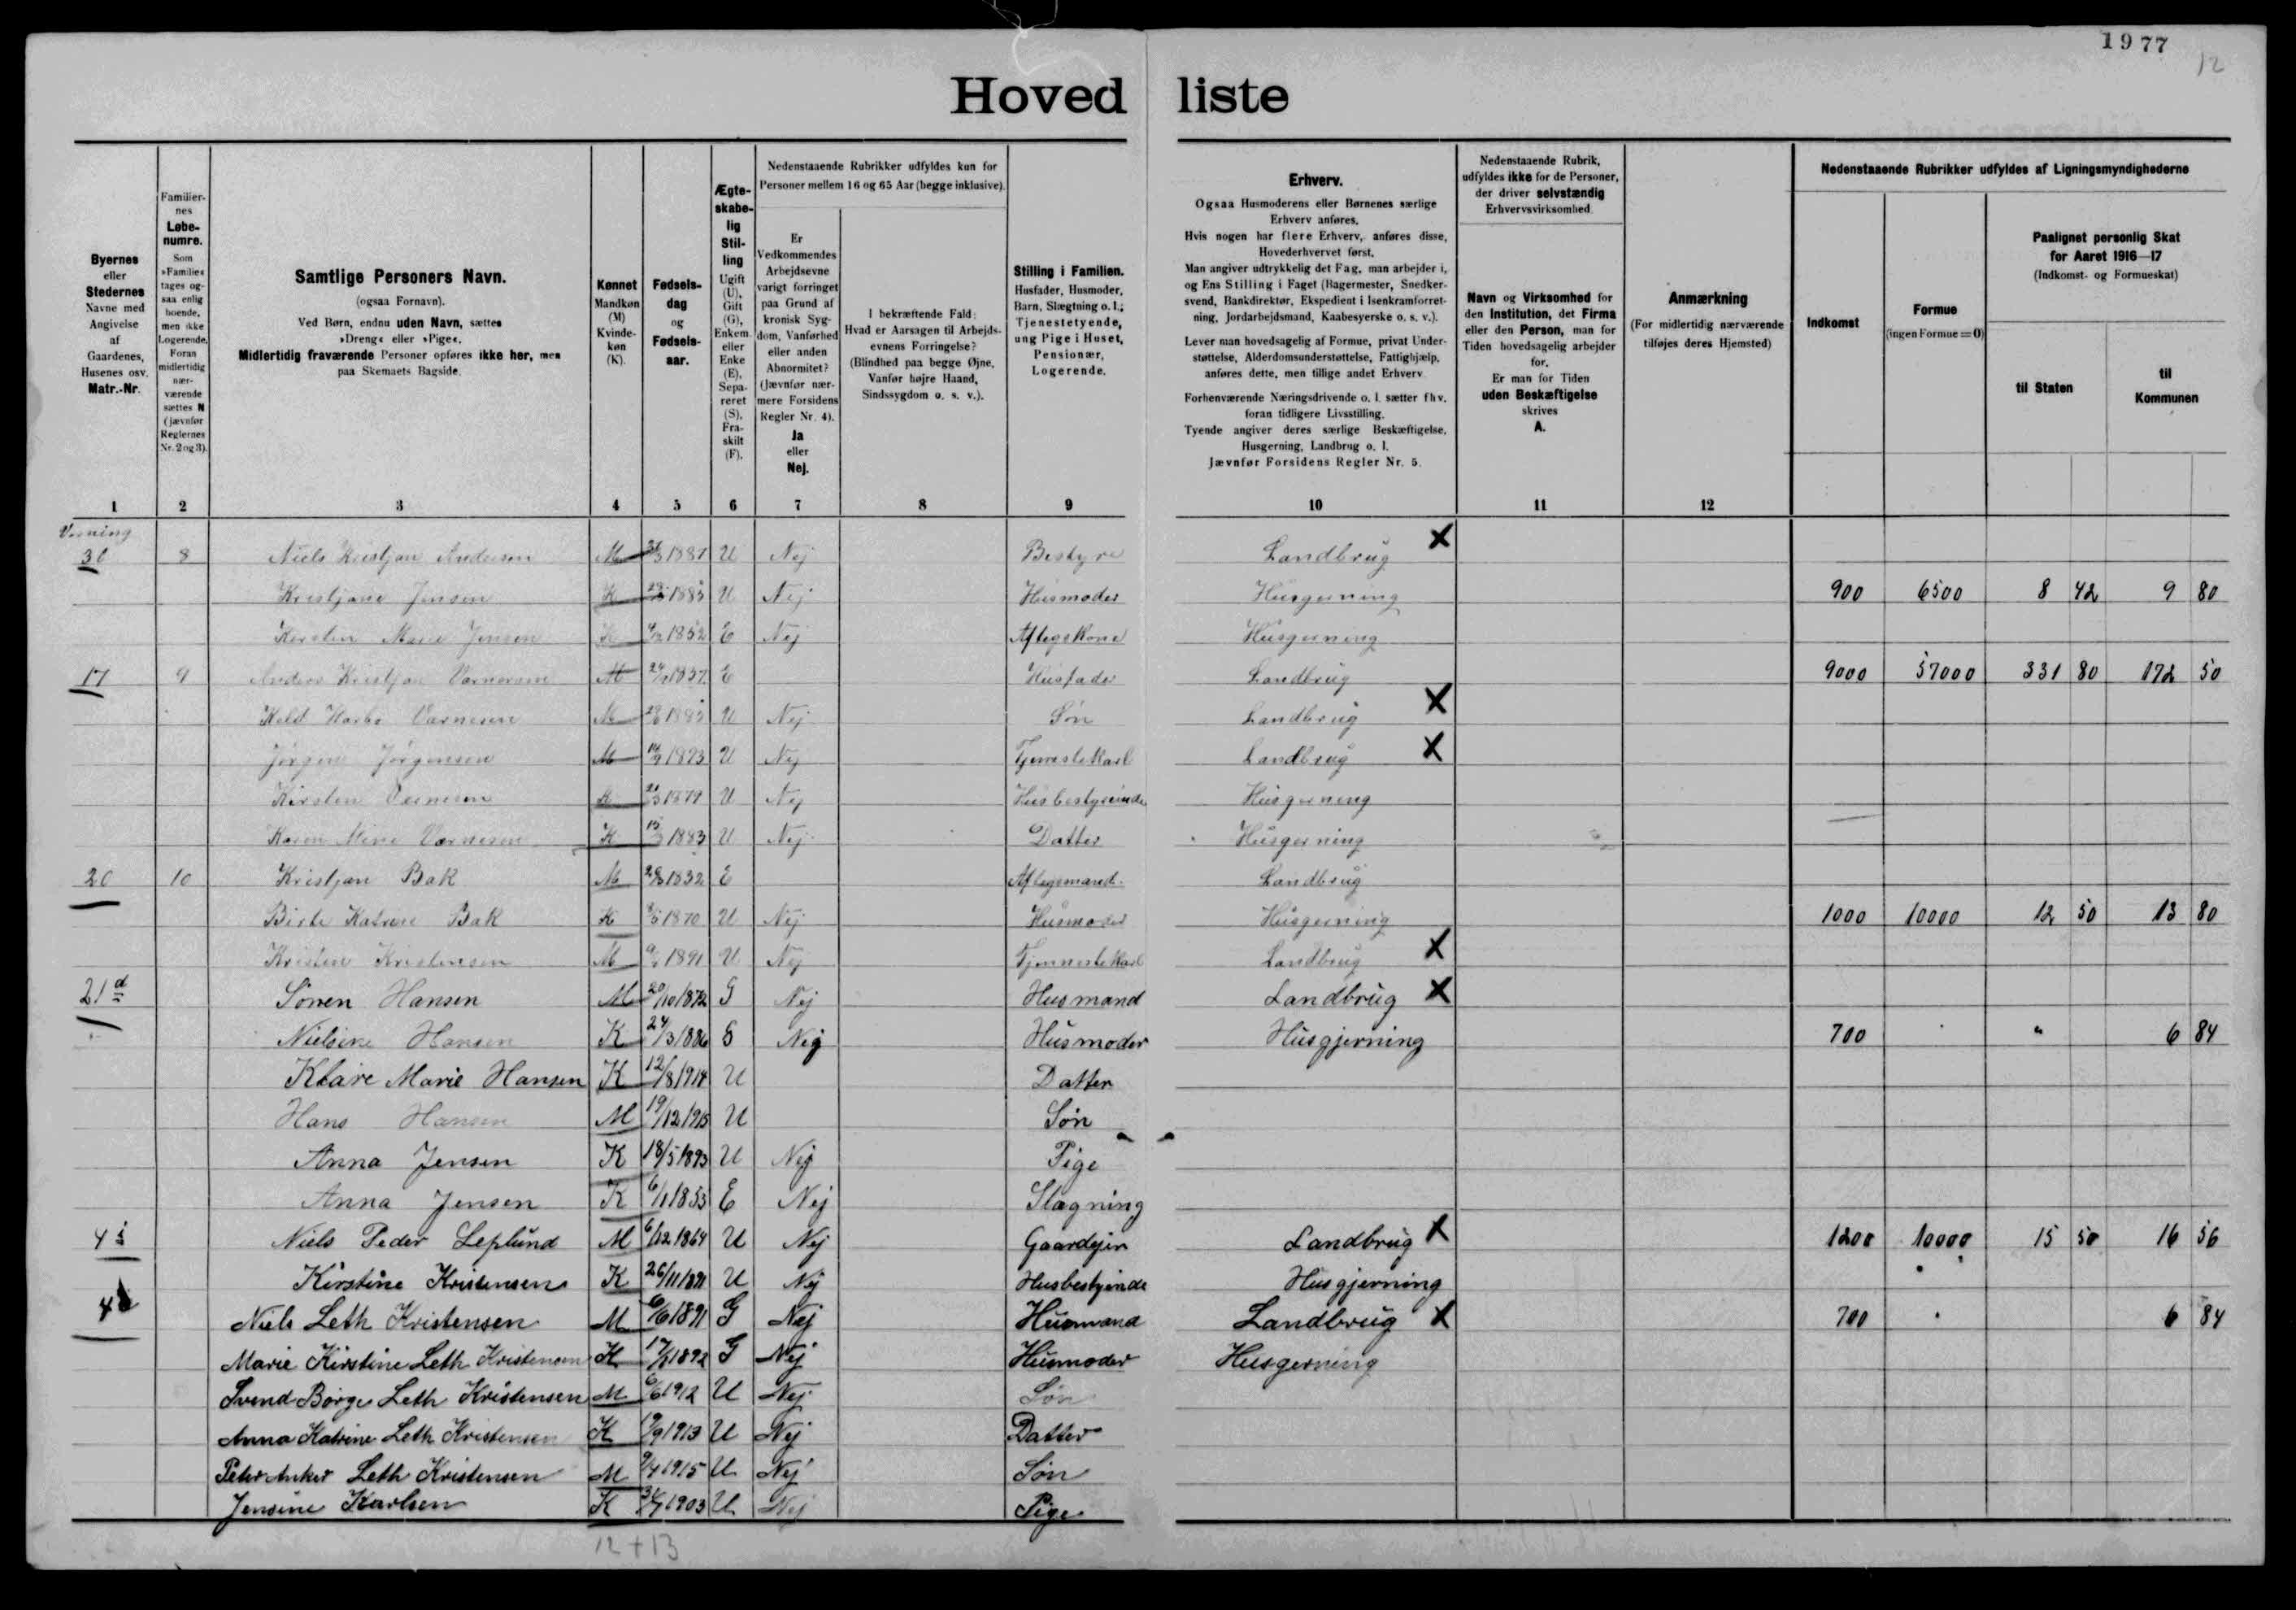 1977
12
Hoved liste
Byernes eller Stedernes Navne med Angivelse af Gaardenes, Husenes osv. Matr.-Nr.
Familiernes Løbenumre. Som »Familie« tages ogsaa enlig boende, men ikke Logerende. Foran midlertidig nærværende sættes N (jævnfør Reglernes Nr. 2 og 3).
Samtlige Personers Navn.
(ogsaa Fornavn).
Ved Børn, endnu uden Navn, sættes
»Dreng« eller »Pige«.
Midlertidig fraværende Personer opføres ikke her, men
paa Skemaets Bagside.
Kønnet Mandkøn (M) Kvindekøn (K).
Fødselsdag og Fødselsaar.
Ægteskabelig Stilling Ugift (U), Gift (G), Enkem. eller Enke (E), Separeret (S), Fraskilt (F).
Nedenstaaende Rubrikker udfyldes kun for
Personer mellem 16 og 65 Aar (begge inklusive).
Er Vedkommendes Arbejdsevne varigt forringet paa Grund af kronisk Sygdom, Vanførhed eller anden Abnormitet? (Jævnfør nærmere Forsidens Regler Nr. 4). Ja eller Nej.
I bekræftende Fald: Hvad er Aarsagen til Arbejdsevnens Forringelse? (Blindhed paa begge Øjne, Vanfør højre Haand, Sindssygdom o. s. v.).
Stilling i Familien. Husfader, Husmoder, Barn, Slægtning o. l.; Tjenestetyende, ung Pige i Huset, Pensionær, Logerende.
Erhverv.
Ogsaa Husmoderens eller Børnenes særlige
Erhverv anføres.
Hvis nogen har flere Erhverv, anføres disse,
Hovederhvervet først.
Man angiver udtrykkelig det Fag, man arbejder i,
og Ens Stilling i Faget (Bagermester, Snedker-
svend, Bankdirektør, Ekspedient i Isenkramforret-
ning, Jordarbejdsmand, Kaabesyerske o. s. v.).
Lever man hovedsagelig af Formue, privat Under-
støttelse, Alderdomsunderstøttelse, Fattighjælp,
anføres dette, men tillige andet Erhverv
Forhenværende Næringsdrivende o. l. sætter fhv.
foran tidligere Livsstilling.
Tyende angiver deres særlige Beskæftigelse,
Husgerning, Landbrug o. l.
Jævnfør Forsidens Regler Nr. 5.
Nedenstaaende Rubrik, udfyldes ikke for de Personer, der driver selvstændig Erhvervsvirksomhed.
Navn og Virksomhed for den Institution, det Firma eller den Person, man for Tiden hovedsagelig arbejder for. Er man for Tiden uden Beskæftigelse skrives A.
Anmærkning
(For midlertidig nærværende
tilføjes deres Hjemsted)
Nedenstaaende Rubrikker udfyldes af Ligningsmyndighederne
Indkomst
Formue
(ingen Formue = 0)
Paalignet personlig Skat
for Aaret 1916—17
(Indkomst- og Formueskat)
til Staten
til Kommunen
1 2 3 4 5 6 7 8 9 10 11 12
8 Niels Kristjan Andersen M 1887 U Nej Bestyre Landbrug X
Kristjane Jensen K 1885 U Nej Husmoder Husgerning 900 6500 8 42 9 80
Kirsten Marie Jensen K 1852 E Nej Aftegskone Husgerning
17 9 Anders Kristjan Varnersen M 1837 E Husfader Landbrug 9000 57000 331 80 172 50
Keld Varnesen M 1885 U Nej Søn Landbrug X
Jørgen Jørgensen M 14/9 1893 U Nej Tjenestekarl Landbrug X
Kirsten Varnesen K 1879 U Nej Husbestyrinde Husgerning
Karen Mine Varnesen K 1883 U Nej Datter Husgerning
20 10 Kristjan Bak M 1832 E Aftegsmand Landbrug
Birte Katrine Bak K 1870 U Nej Husmoder Husgerning 1000 10000 12 50 13 80
Kristen Kristensen M 1891 U Nej Tjennestekarl Landbrug X
21 d Sören Hansen M 20/10 1872 G Nej Husmand Landbrug X
Nielsine Hansen K 24/3 1886 G Nej Husmoder Husgjerning 700 " 6 84
Klare Marie Hansen K 12/8 1914 U Datter
Hans Hansen M 19/12 1915 U Søn
Anna Jensen K 18/5 1893 U Nej Pige
Anna Jensen K 6/1 1853 E Nej Slægning
Niels Peder Leplund M 6/12 1864 U Nej Gaardejer Landbrug X 1200 10000 15 50 16 56
Kirstine Kristensen K 26/11 1891 U Nej Husbestyinde Husgjerning
Niels Leth Kristensen M 6/6 1891 G Nej Husmand Landbrug X 700 6 84
Marie Kirstine Leth Kristensen K 1892 G Nej Husmoder Husgerning
Svend Börge Leth Kristensen M 6/6 1912 U Nej Søn
Anna Katrine Leth Kristensen K 19/9 1913 U Nej Datter
Peter Anker Leth Kristensen M 9/4 1915 U Nej Søn
Jensine Karlsen K 1903 U Nej Pige
12 + 13